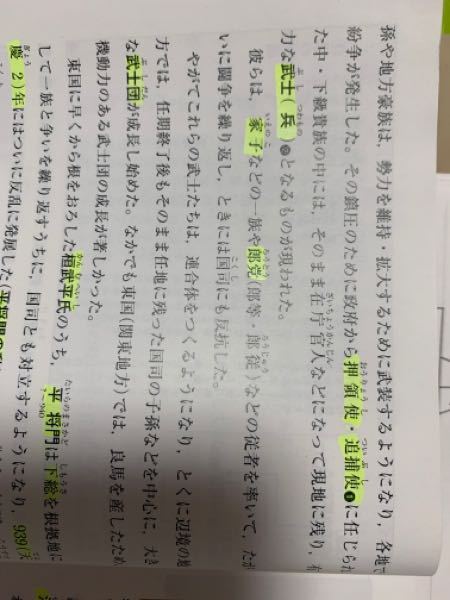 孫や地方豪族は，勢力を維持・拡大するために武装するようになり，各地で
紛争が発生した。その鎮圧のために政府から押領使・追捕使❶に任じられ
おうりょうし ついぶし
た中・下級貴族の中には，そのまま在庁官人などになって現地に残り，有
ざいちょうかんじん
力な武士（兵）❷となるものが現われた。
ぶし つわもの
彼らは，家子などの一族や郎党（郎等・郎従）などの従者を率いて，たが
いえのこ ろうとう ろうじゅう
いに闘争を繰り返し，ときには国司にも反抗した。
こくし
やがてこれらの武士たちは，連合体をつくるようになり，とくに辺境の地
方では，任期終了後もそのまま任地に残った国司の子孫などを中心に，大き
な武士団が成長し始めた。なかでも東国（関東地方）では，良馬を産したため
ぶしだん
機動力のある武士団の成長が著しかった。
東国に早くから根をおろした桓武平氏のうち，平将門は下総を根拠地に
かんむへいし たいらのまさかど しもうさ
?〜940
して一族と争いを繰り返すうちに，国司とも対立するようになり，939（天
慶2）年にはついに反乱に発展した（平将門の
ぎょう